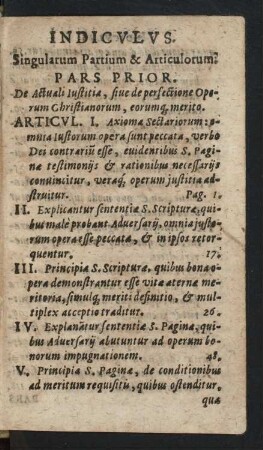 INDICVLVS
Singularum Partium & Articulorum.
PARS PRIOR.
De Actuali Iustitia, siue de perfectione Ope-
rum Christianorum, eorumq; merito.
ARTICVL. I. Axioma Sectariorum: o-
mnia Iustorum opera sunt peccata, verbo
Dei contrariũ esse, euidentibus S. Pagi-
næ testimonijs & rationibus necessarijs
conuincitur, veraq; operum justitia ad-
struitur. Pag. 1.
II. Explicantur sententiæ S. Scripturæ, qui-
bus male probant Aduersarij, omnia justo-
rum opera esse peccata, & in ipsos retor-
quentur. 17.
III. Principia S. Scripturæ, quibus bona o-
pera demonstrantur esse vitæ æternæ me-
ritoria, simulq; meriti definitio, & mul-
tiplex acceptio traditur. 26.
IV. Explanãtur sententiæ S. Paginæ, qui-
bus Aduersarij abutuntur ad operum bo-
norum impugnationem. 48.
V. Principia S. Paginæ, de conditionibus
ad meritum requisitis, quibus ostenditur,
quæ